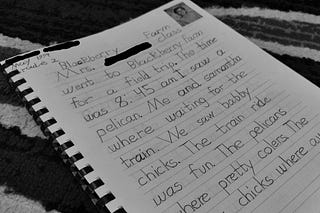 Blackberry Farm
class
Mrs.
went to Blackberry Farm
for a field trip. The time
was 8:45 am I saw a
pelican. Me and samanta
where waiting for the
train. We saw babby
chicks. The train ride
was fun. The pelicans
where pretty colers. The
chicks where